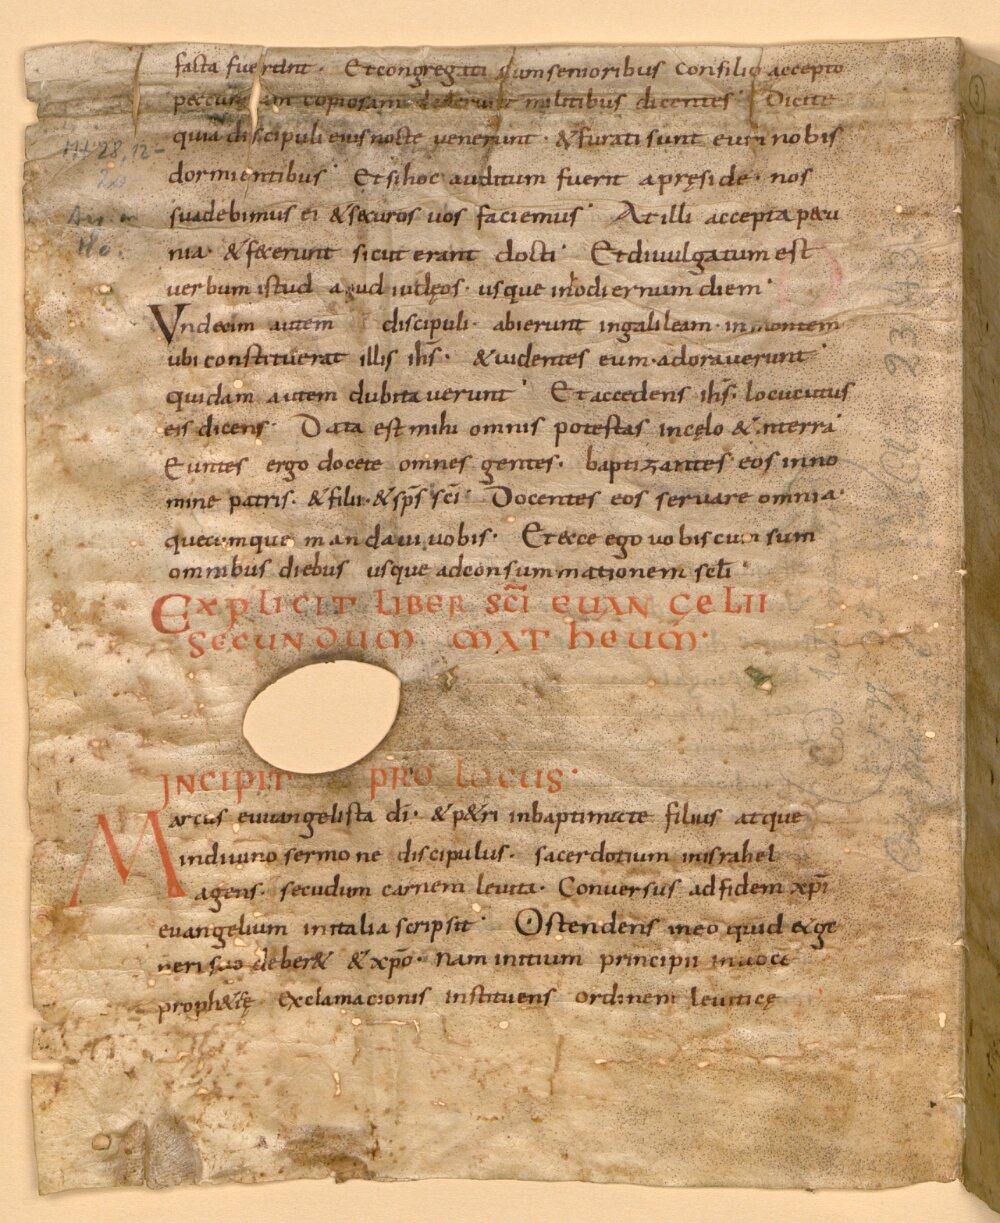 facta fuerant · Et congregati cum senioribus consilio accepto
pecuniam copiosam dederunt militibus dicentes · Dicite
quia discipuli eius nocte venerunt · & furati sunt eum nobis
dormientibus · Et si hoc auditum fuerit apręside · nos
suadebimus ei & securos uos faciemus · At illi accepta pecu
nia · & fecerunt sicut erant docti · Et diuulgatum est
uerbum istud apud iudęos · usque inhodiernum diem ·
Vndecim autem discipuli · abierunt ingalileam · inmontem
ubi constituerat illis ihs̄ · & uidentes eum · adorauerunt ·
quidam autem dubitauerunt · Et accedens ihs̄ · locutus
eis dicens · Data est mihi omnis potestas incęlo & interra
Euntes ergo docete omnes gentes · baptizantes eos inno
mine patris · & filii · & sps̄ sc̄i · Docentes eos seruare omnia ·
quecumque mandaui uobis · Et ecce ego uobiscum sum
omnibus diebus usque adconsummationem sec̄li ·
EXPLICIT LIBER SC̄I EUANGELII
SECUNDUM MATHEUM ·
INCIPIT PROLOGUS ·
Marcus euuangelista dī · & p&ri inbaptismate filius atque
indiuino sermone discipulus · sacerdotium inisrahel
agens · secudum carnem leuita · Conuersus adfidem xp̄i
euangelium initalia scripsit · Ostendens ineo quid & ge
neri suo deber& & xp̄o · Nam initium principii inuoce
proph&icę exclamacionis instituens ordinem leuiticę
Mt 28, 12–
20